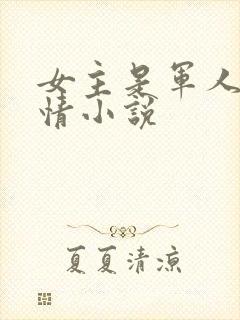 女主是军人
情小说
夏夏清凉